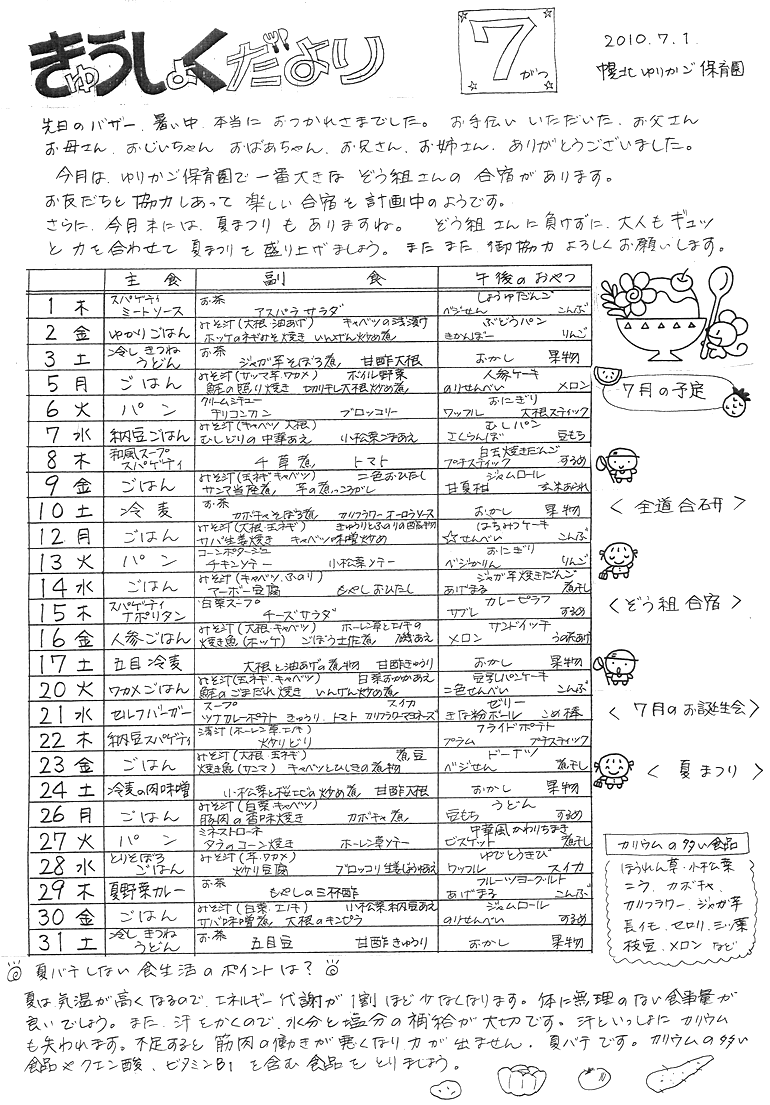 きゅうしょくだより
7がつ
2010.7.1.
幌北ゆりかご保育園
先日のバザー、暑い中、本当におつかれさまでした。 お手伝いいただいた、お父さん
お母さん、おじいちゃん おばあちゃん、お兄さん、お姉さん、ありがとうございました。
今月は、ゆりかご保育園で一番大きな ぞう組さんの 合宿があります。
お友だちと協力しあって 楽しい合宿を計画中のようです。
さらに、今月末には、夏まつりもありますね。 ぞう組さんに負けずに、大人もギュッ
と力を合わせて夏まつりを盛り上げましょう。またまた、御協力よろしくお願いします。
主食 副食 午後のおやつ
1 木 スパゲティミートソース お茶 アスパラサラダ しょうゆだんご ベジせん こんぶ
2 金 ゆかりごはん みそ汁(大根・油あげ) キャベツの浅漬け ホッケのネギみそ焼き いんげん炒め煮 ぶどうパン きかんぼー りんご
3 土 冷しきつねうどん お茶 ジャガ芋そぼろ煮 甘酢大根 おかし 果物
5 月 ごはん みそ汁(サツマ芋・ワカメ) ボイル野菜 鮭の照り焼き 切り干し大根炒め煮 人参ケーキ のりせんべい メロン
6 火 パン クリームシチュー チリコンカン ブロッコリー おにぎり ワッフル 大根スティック
7 水 納豆ごはん みそ汁(キャベツ 大根) むしどりの中華あえ 小松菜ごまあえ むしパン さくらんぼ 豆もち
8 木 和風スープスパゲティ 千草煮 トマト 白玉焼きだんご プチスティック するめ
9 金 ごはん みそ汁(玉ネギ・キャベツ) 二色おひたし サンマ当座煮 芋の煮っころがし ジャムロール 甘夏柑 玄米あられ
10 土 冷麦 お茶 カボチャそぼろ煮 カリフラワーオーロラソース おかし 果物
12 月 ごはん みそ汁(大根・玉ネギ) きゅうりとふのりの酢物 サバ生姜焼き キャベツ味噌炒め はちみつケーキ ☆せんべい こんぶ
13 火 パン コーンポタージュ チキンソテー 小松菜ソテー おにぎり ベジかりん りんご
14 水 ごはん みそ汁(キャベツ、ふのり) マーボー豆腐 もやしおひたし ジャガ芋焼きだんご あげまる 煮干し
15 木 スパゲティナポリタン 白菜スープ チーズサラダ カレーピラフ サブレ するめ
16 金 人参ごはん みそ汁(大根・キャベツ) ホーレン草とエノキの磯あえ 焼き魚(ホッケ) ごぼう土佐煮 サンドイッチ メロン うの花あげ
17 土 五目冷麦 大根と油あげの煮物 甘酢きゅうり おかし 果物
20 火 ワカメごはん みそ汁(玉ネギ・キャベツ) 白菜おかかあえ 鮭のごまだれ焼き いんげん炒め煮 豆乳パンケーキ 二色せんべい こんぶ
21 水 セルフバーガー スープ スイカ ツナカレーポテト きゅうり、トマト カリフラワーマヨネーズ ゼリー きな粉ボール こめ棒
22 木 納豆スパゲティ 清汁(ホーレン草・エノキ) 炒りどり フライドポテト プラム プチスティック
23 金 ごはん みそ汁(大根 玉ネギ) 煮豆 焼き魚(サンマ) キャベツとひじきの煮物 ドーナツ ベジせん 煮干し
24 土 冷麦の肉味噌 小松菜と桜エビの炒め煮 甘酢大根 おかし 果物
26 月 ごはん みそ汁(白菜キャベツ) 豚肉の香味焼き カボチャ煮 うどん 豆もち するめ
27 火 パン ミネストローネ タラのコーン焼き ホーレン草ソテー 中華風かわりちまき ビスケット 煮干し
28 水 とりそぼろごはん みそ汁(芋・ワカメ) 炒り豆腐 ブロッコリ生姜じょうゆあえ ゆでとうきび ワッフル スイカ
29 木 夏野菜カレー お茶 もやしの三杯酢 フルーツヨーグルト あげまる こんぶ
30 金 ごはん みそ汁(白菜・エノキ) 小松菜納豆あえ サバ味噌煮 大根のキンピラ ジャムロール のりせんべい するめ
31 土 冷しきつねうどん お茶 五目豆 甘酢きゅうり おかし 果物
7月の予定
< 全道合研 >
< ぞう組 合宿 >
< 7月のお誕生会 >
< 夏まつり >
カリウムの多い食品
ほうれん草・小松菜
ニラ、カボチャ、
カリフラワー、ジャガ芋
長イモ、セロリ、三ッ葉
枝豆、メロン など
夏バテしない食生活のポイントは?
夏は気温が高くなるので、エネルギー代謝が1割ほど少なくなります。体に無理のない食事量が
良いでしょう。また、汗をかくので、水分と塩分の補給が大切です。汗といっしょに カリウム
も失われます。不足すると筋肉の働きが悪くなり力が出ません。夏バテです。カリウムの多い
食品やクエン酸、ビタミンB1 を含む食品をとりましょう。